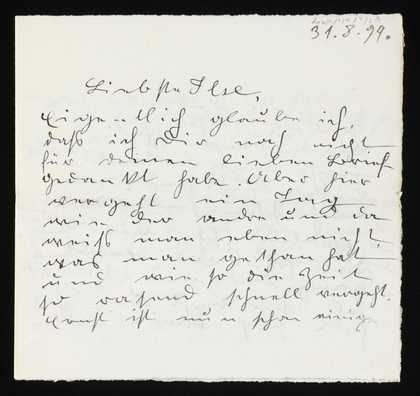 31.8.99.
Liebste Ilse,
Eigentlich glaube ich,
dass ich Dir noch nicht
für deinen lieben Brief
gedankt habe. Aber hier
vergeht ein Tag
wie der andre und da
weiss man eben nicht,
was man gethan hat
und wie so die Zeit
so rasend schnell vergeht.
Ernst ist nun schon einige